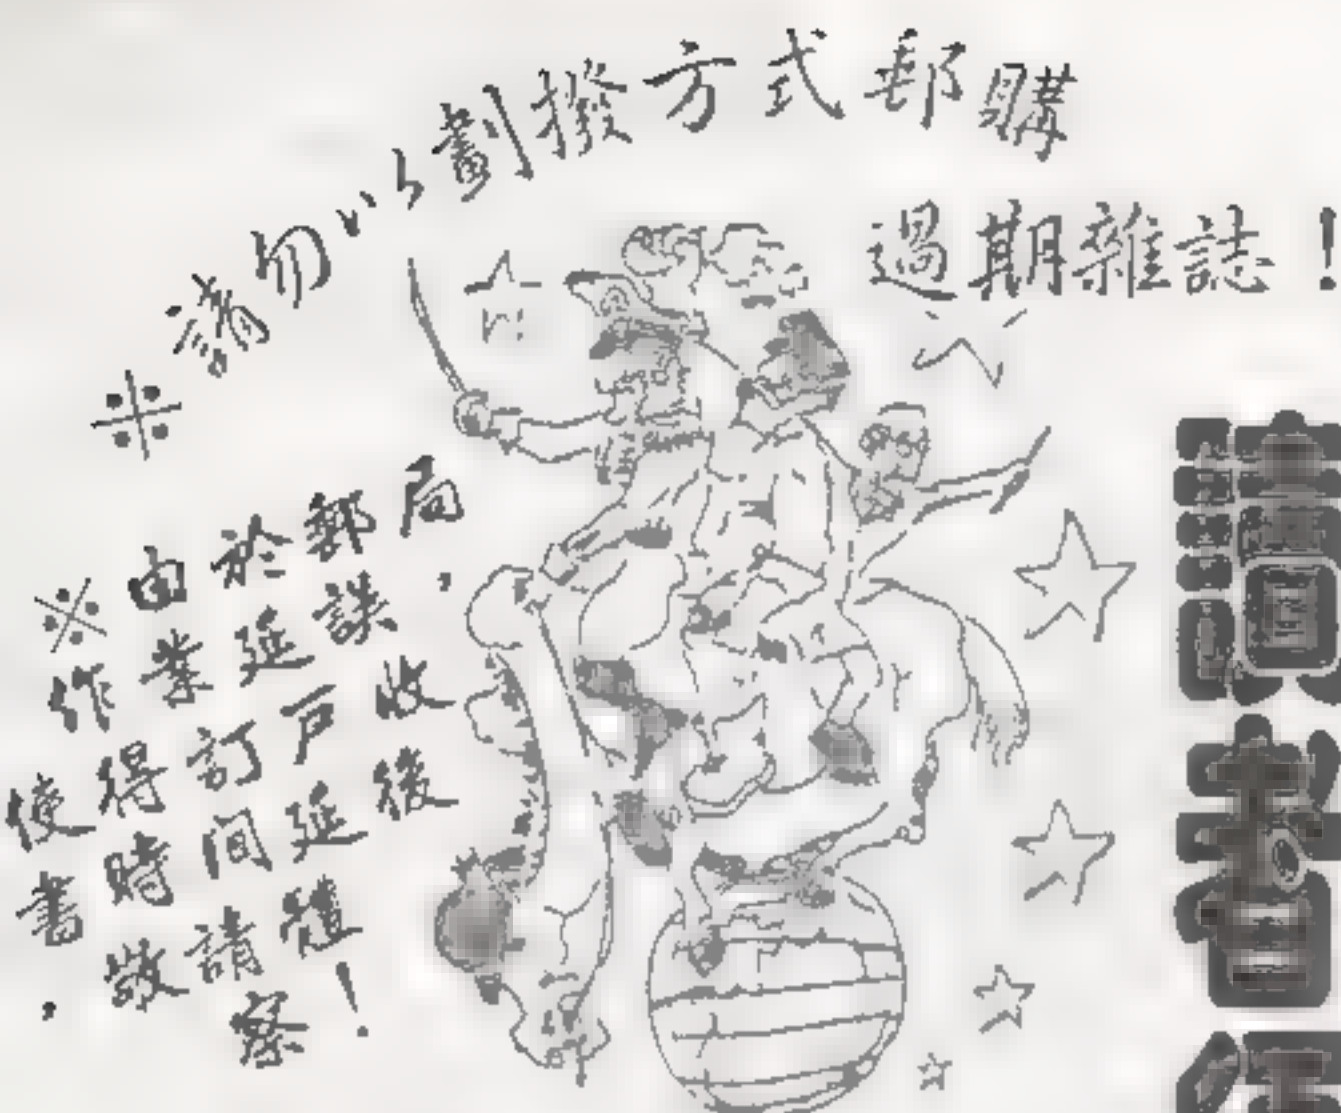 ※請勿以劃撥方式郵購
過期雜誌!
※由於郵局
作業延誤,
使得訂戶收
書時間延後
,敬請體
察!
讀者